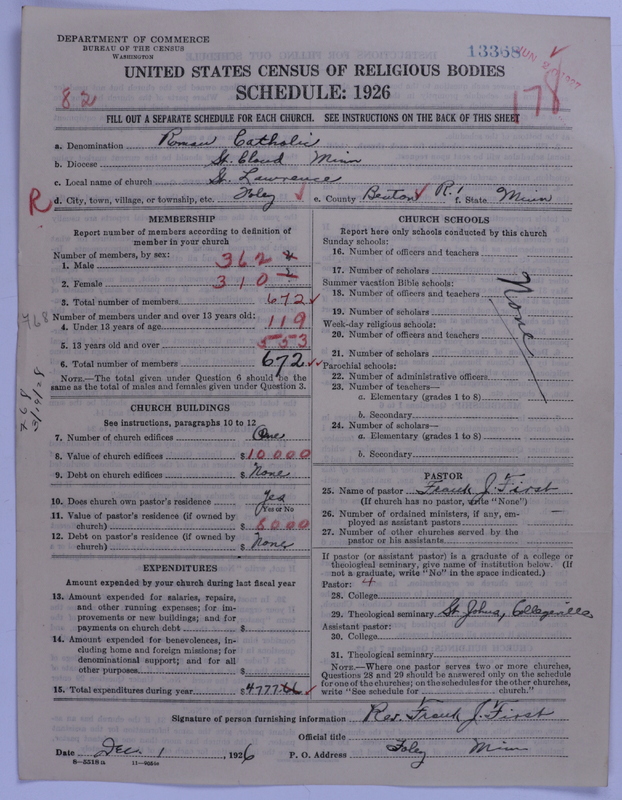 DEPARTMENT OF COMMERCE
BUREAU OF THE CENSUS
WASHINGTON
13368
UNITED STATES CENSUS OF RELIGIOUS BODIES
SCHEDULE: 1926
82
178
FILL OUT A SEPARATE SCHEDULE FOR EACH CHURCH. SEE INSTRUCTIONS ON THE BACK OF THIS SHEET
a. Denomination Roman Catholic
b. Diocese St. Cloud Minn
c. Local name of church St. Lawrence
R d. City, town, village, or township, etc. Foley e. County Benton R! f. State Minn
MEMBERSHIP
Report number of members according to definition of member in your church
Number of members, by sex:
1. Male 362
2. Female 310
3. Total number of members 672
Number of members under and over 13 years old:
4. Under 13 years of age 119
5. 13 years old and over 553
6. Total number of members 672
NOTE.—The total given under Question 6 should be the same as the total of males and females given under Question 3.
768
768
3/19/28
CHURCH BUILDINGS
See instructions, paragraphs 10 to 12
7. Number of church edifices One
8. Value of church edifices $10000
9. Debt on church edifices $None
10. Does church own pastor's residence Yes
(Yes or No
11. Value of pastor's residence (if owned by church) $8000
12. Debt on pastor's residence (if owned by church) $None
EXPENDITURES
Amount expended by your church during last fiscal year
13. Amount expended for salaries, repairs, and other running expenses; for improvements or new buildings; and for payments on church debt $
14. Amount expended for benevolences, including home and foreign missions; for denominational support; and for all other purposes $
15. Total expenditures during year $4777
CHURCH SCHOOLS
Report here only schools conducted by this church
Sunday schools:
16. Number of officers and teachers
17. Number of scholars
Summer vacation Bible schools:
18. Number of officers and teachers
19. Number of scholars
Week-day religious schools:
20. Number of officers and teachers
21. Number of scholars
Parochial schools:
22. Number of administrative officers
23. Number of teachers—
a. Elementary (grades 1 to 8)
b. Secondary
24. Number of scholars—
a. Elementary (grades 1 to 8)
b. Secondary
None
PASTOR
25. Name of pastor Frank J. First
(If church has no pastor, write "None")
26. Number of ordained ministers, if any, employed as assistant pastors —
27. Number of other churches served by the pastor or his assistants
If pastor (or assistant pastor) is a graduate of a college or theological seminary, give name of institution below. (If not a graduate, write "No" in the space indicated.)
Pastor: 4
28. College
29. Theological seminary St Johns, Collegeville
Assistant pastor:
30. College
31. Theological seminary
NOTE.—Where one pastor serves two or more churches, Questions 28 and 29 should be answered only on the schedule for one of the churches; on the schedules for the other churches, write "See schedule for church."
Signature of person furnishing information Rev. Frank J. First
Official title
Date Dec. 1, 1926 P. O. Address Foley Minn